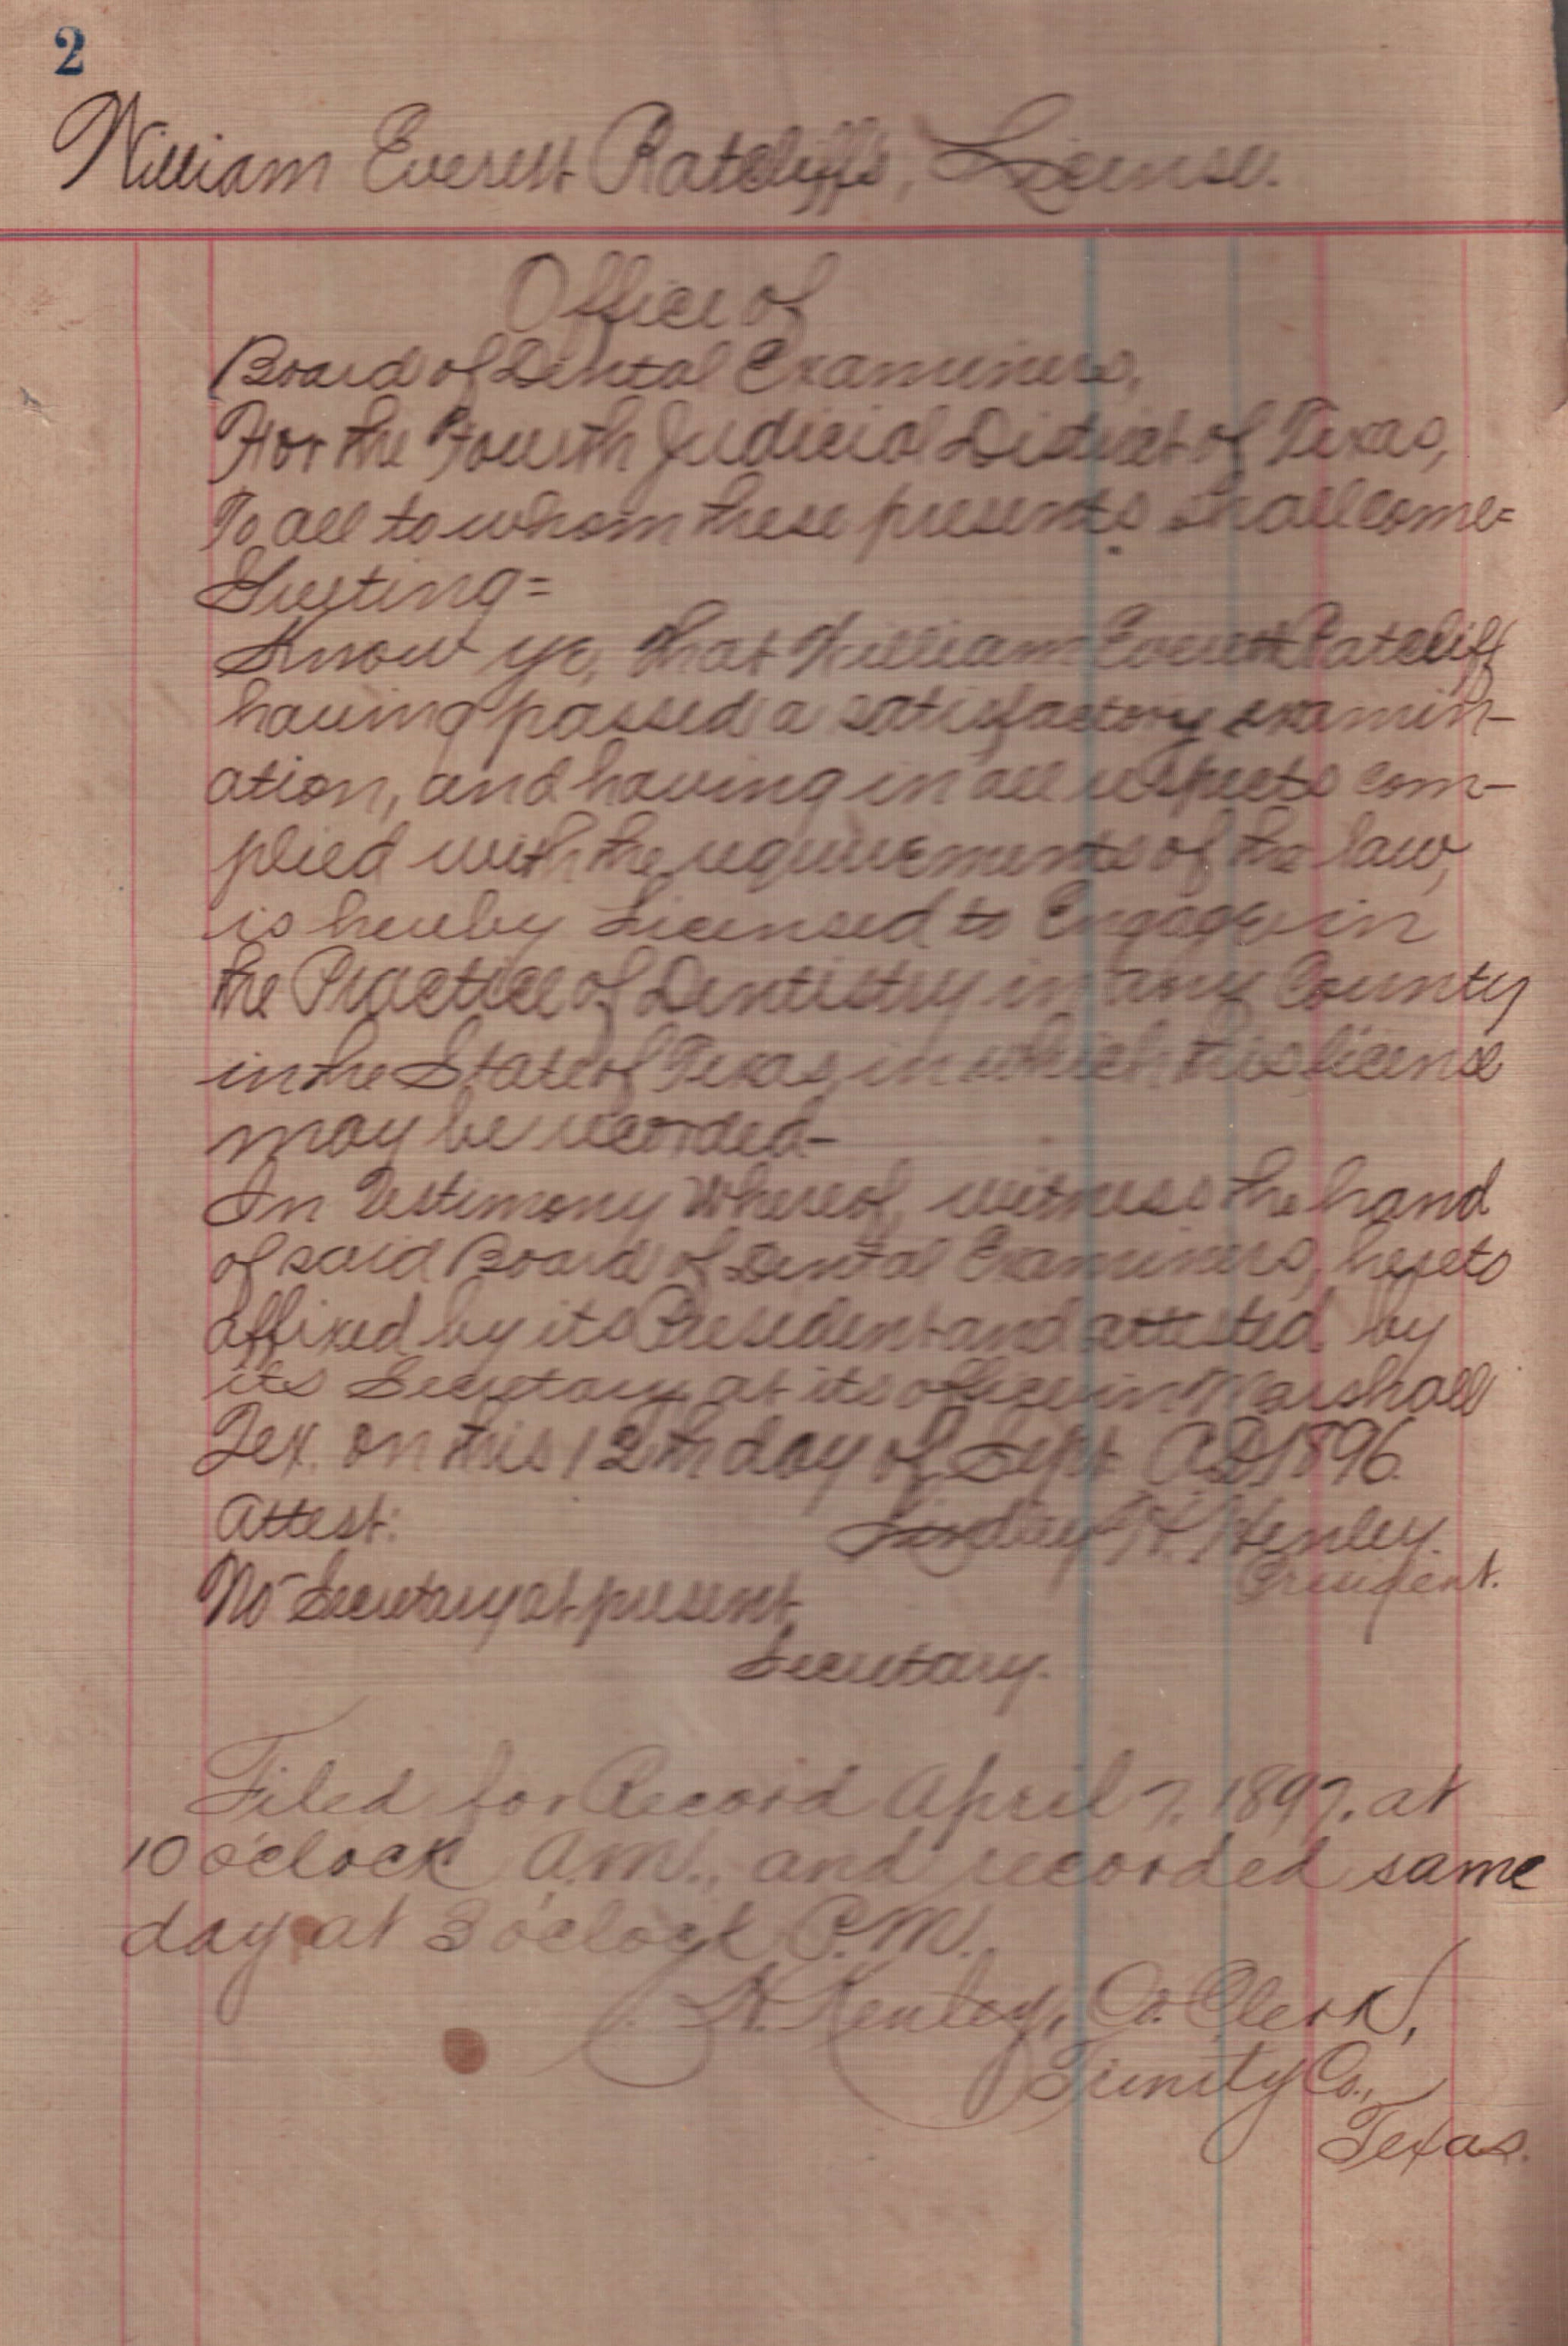 2
William Everett Ratcliff's, License.
Office of
Board of Dental Examiners,
For the Fourth Judicial District of Texas,
To all to whom these presents shall come=
Greeting=
Know ye, that William Everett Ratcliff
having passed a satisfactory examin-
ation, and having in all respects com-
plied with the requirements of the law,
is hereby Licensed to Engage in
the Practice of Dentistry in any County
in the State of Texas, in which this license
may be recorded-
In Testimony Whereof, witness the hand
of said Board of Dental Examiners, hereto
affixed by its President and attested by
its Secretary at its office in Marshall
Tex. on this 12th day of Sept. A.D. 1896.
Attest:
Henley.
President.
No Secretary at present
Secretary.
Filed for Record April 7, 1897, at
10 o'clock A.M., and recorded same
day at 3 o'clock P.M.
H. Kenley, Co. Clerk,
Trinity Co.,
Texas.